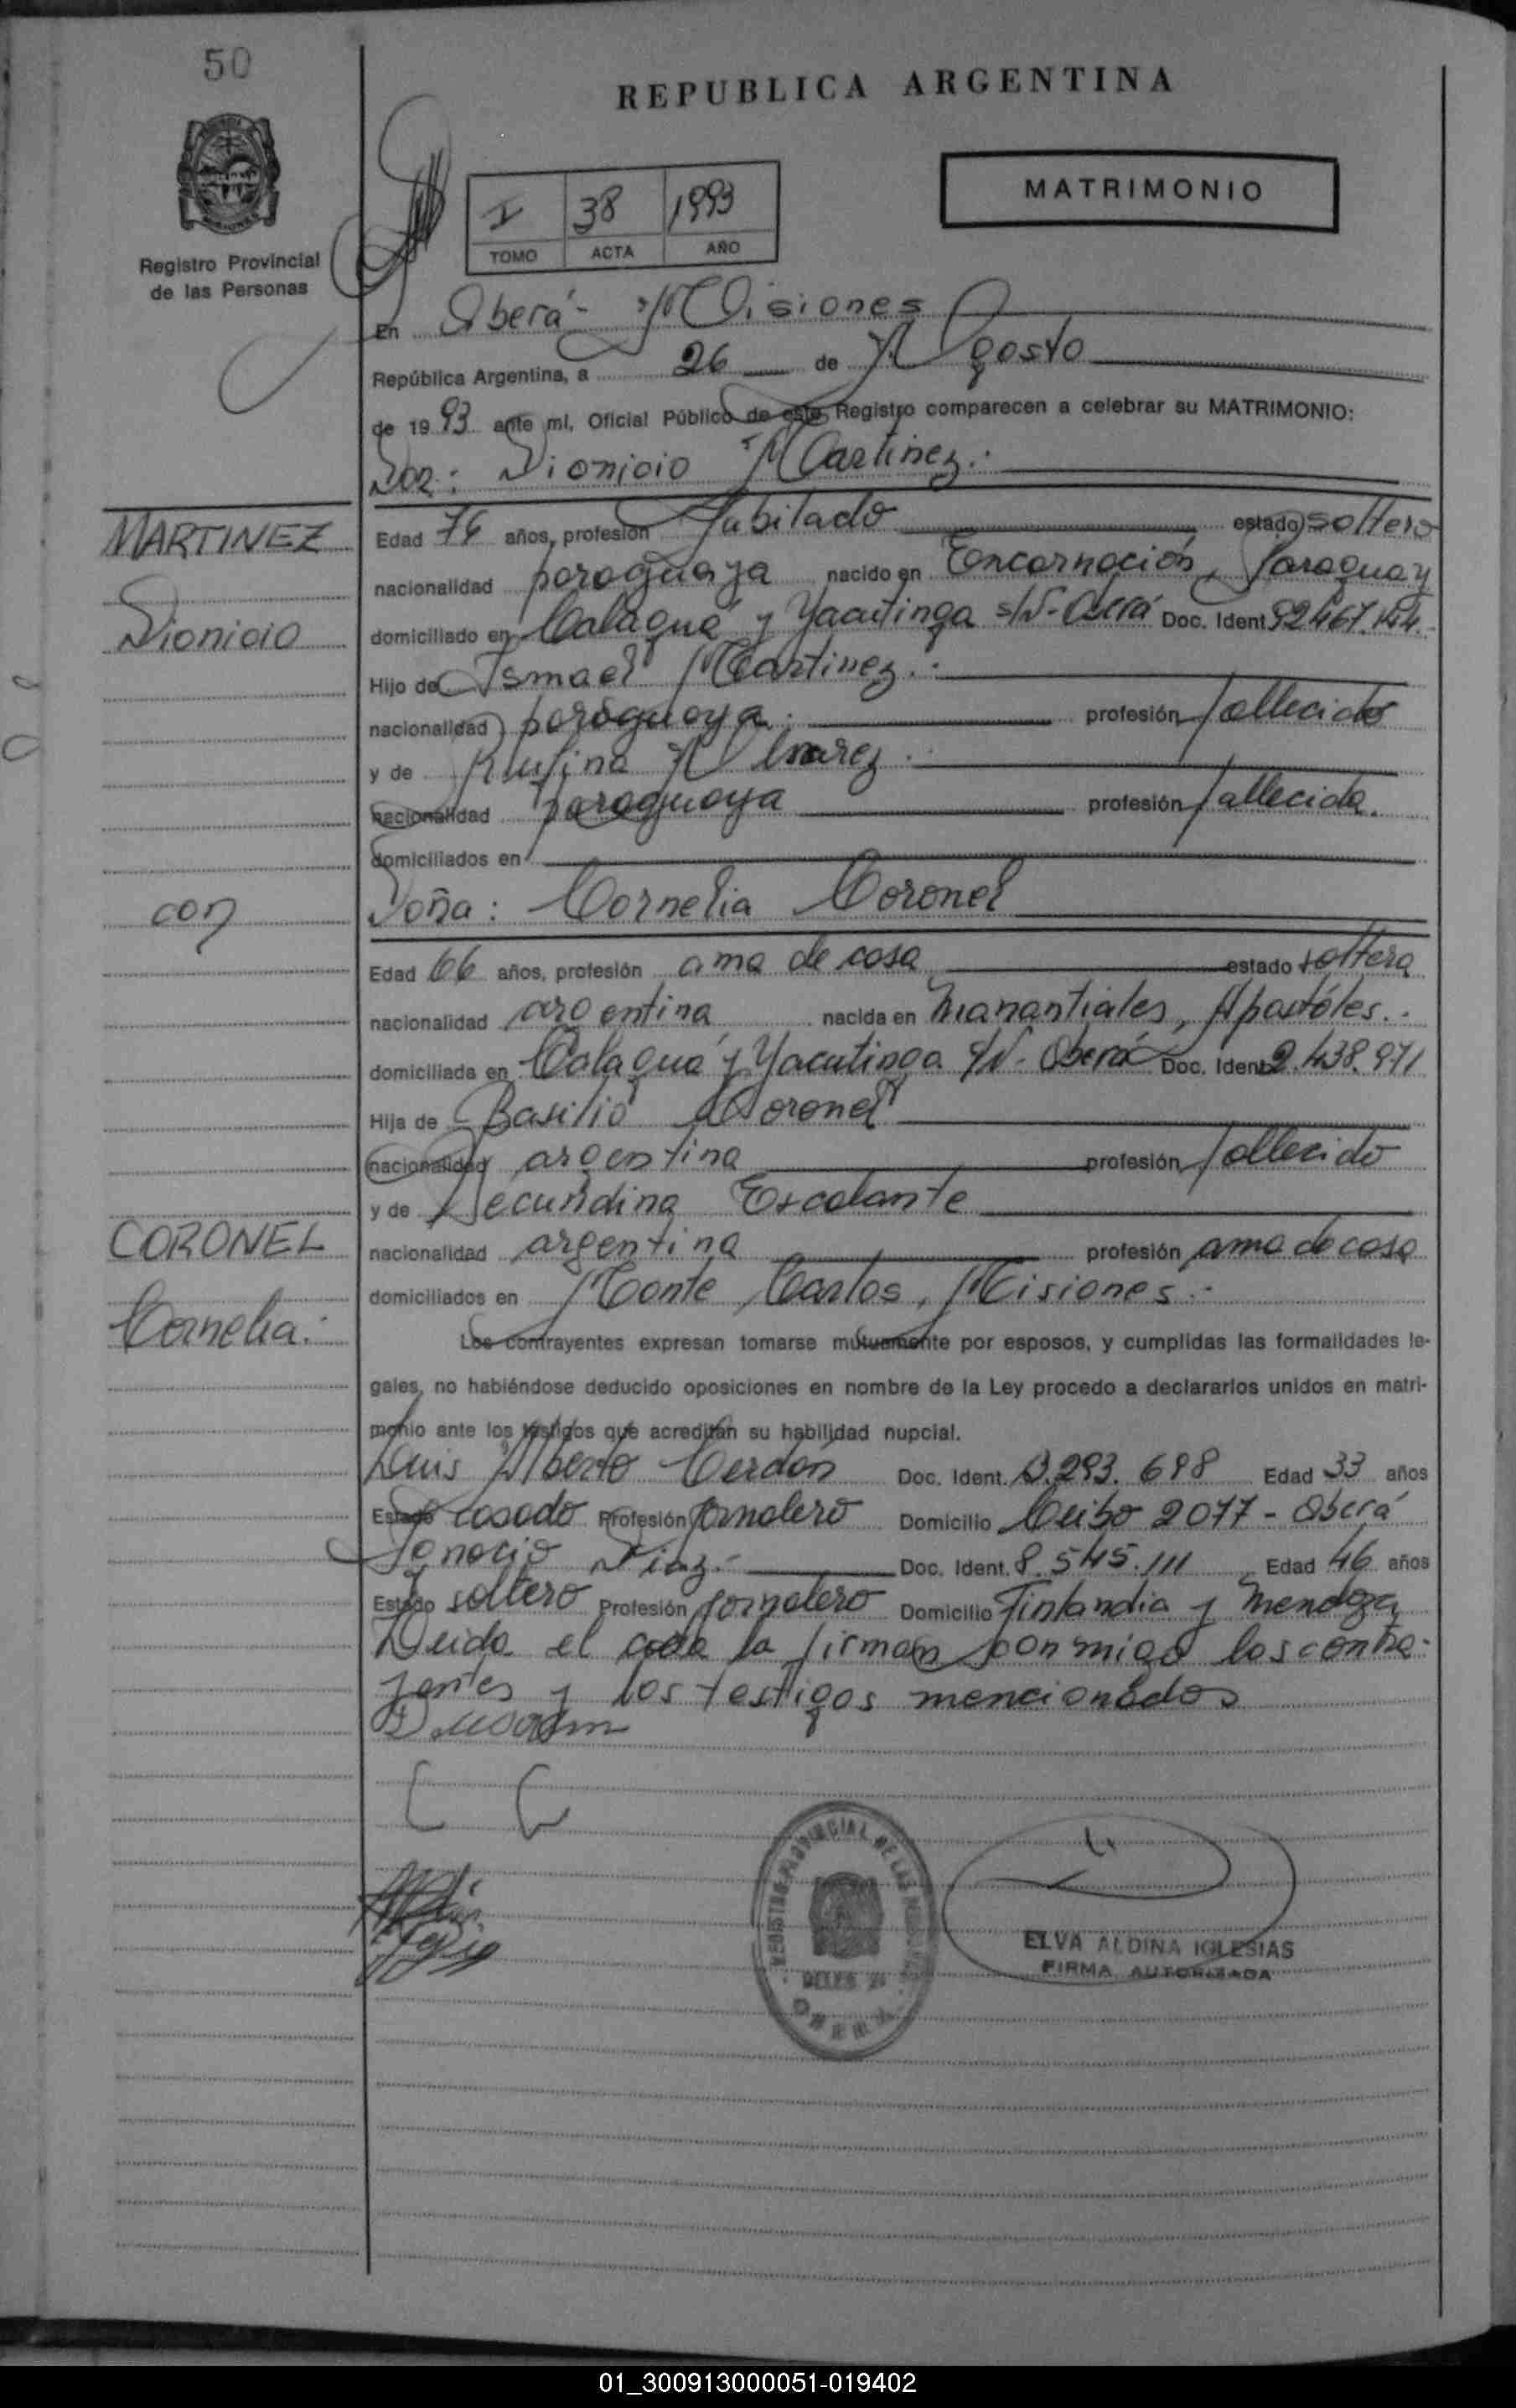 50
REPUBLICA ARGENTINA
MATRIMONIO
I 38 1993
TOMO ACTA AÑO
Registro Provincial
de las Personas
En Oberá - Misiones
República Argentina, a 26 de Agosto
de 1993 ante mi, Oficial Público de este Registro comparecen a celebrar su MATRIMONIO:
Don: Dionicio Martinez.-
MARTINEZ
Dionicio
Edad 76 años, profesión Jubilado estado soltero
nacionalidad paraguaya nacido en Encarnación, Paraguay
domiciliado en Calaguá y Yacutinga s/N - Oberá Doc. Ident 92.467.144.-
Hijo de Ismael Martinez.-
nacionalidad paraguaya.- profesión fallecido
y de Rufina Alvarez.-
nacionalidad paraguaya profesión fallecida.
domiciliados en
con
Doña: Cornelia Coronel
Edad 66 años, profesión ama de casa estado soltera
nacionalidad argentina nacida en Manantiales, Apostóles.-
domiciliada en Calaguá y Yacutinga s/N - Oberá Doc. Ident 2.438.971
Hija de Basilio Coronel
nacionalidad argentina profesión fallecido
y de Secundina Escalante
CORONEL
Cornelia.-
nacionalidad argentina profesión ama de casa
domiciliados en Monte Carlos, Misiones.-
Los contrayentes expresan tomarse mutuamente por esposos, y cumplidas las formalidades le-
gales, no habiéndose deducido oposiciones en nombre de la Ley procedo a declararlos unidos en matri-
monio ante los testigos que acreditan su habilidad nupcial.
Luis Alberto Cerdán Doc. Ident. 13.293.698 Edad 33 años
Estado casado Profesión jornalero Domicilio Ceibo 2077 - Oberá
Ignacio Diaz.- Doc. Ident. 8.545.111 Edad 46 años
Estado soltero Profesión jornalero Domicilio Finlandia y Mendoza
Leida el acta la firman conmigo los contra-
yentes y los testigos mencionados
REGISTRO PROVINCIAL DE LAS PERSONAS
OBERA
ELVA ALDINA IGLESIAS
FIRMA AUTORIZADA
01_300913000051-019402